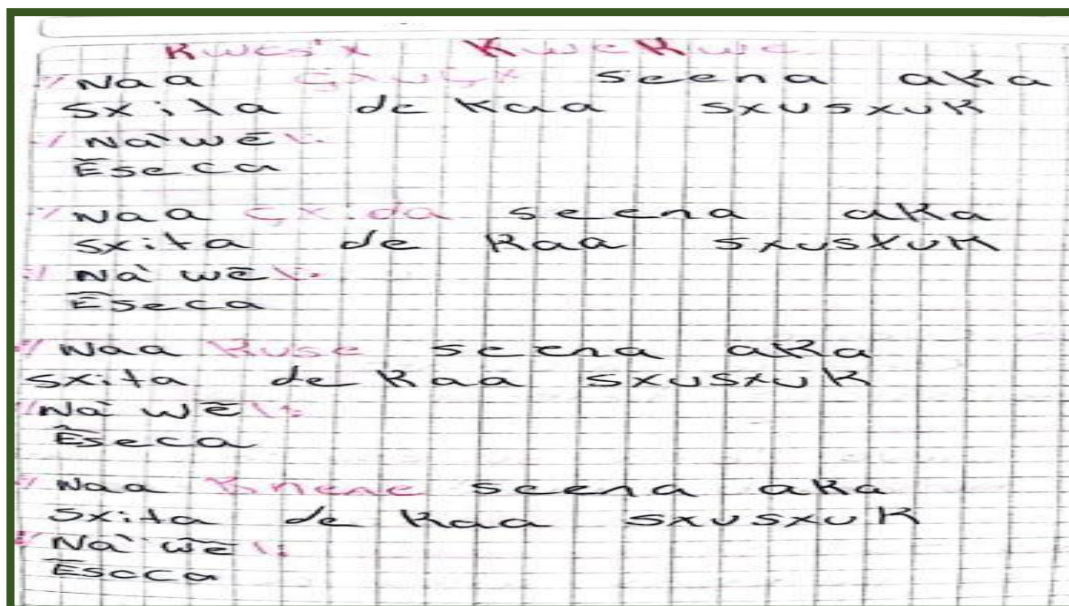 Kwes'x Kwekwe
:/ Naa çxuçx seena aka
sxita de kaa sxusxuk
:/ Na'wẽ \:
Ẽseca
:/ Naa çxida seena aka
sxita de kaa sxusxuk
:/ Na' wẽ \:
Ẽseca
:/ Naa kuse seena aka
sxita de kaa sxusxuk
:/ Na' wẽ \:
Ẽseca
:/ Naa seena aka
sxita de kaa sxusxuk
:/ Na' wẽ \:
Ẽseca